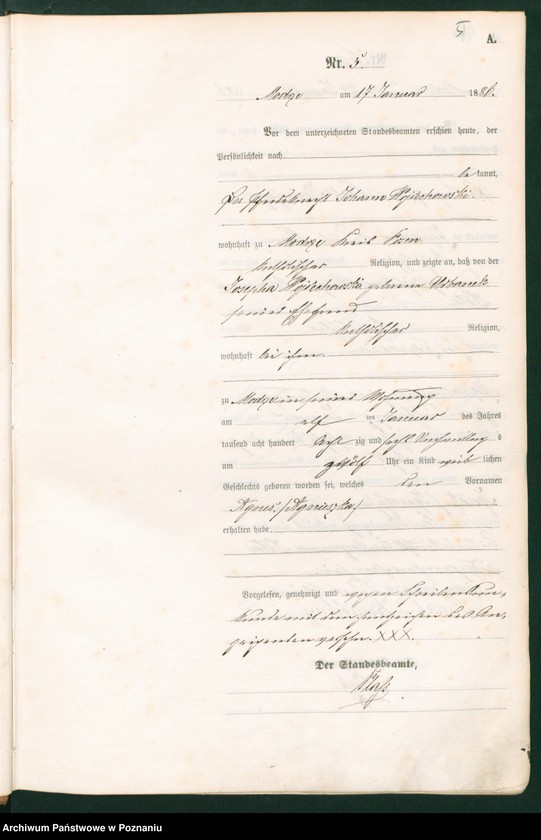 5
A.
Nr. 5.
Modze am 17 Januar 1886.
Vor dem unterzeichneten Standesbeamten erschien heute, der
Persönlichkeit nach
be kannt,
Der Pferdeknecht Johann Wojciechowski
wohnhaft zu Modze Kreis Posen
katholischer Religion, und zeigte an, daß von der
Josepha Wojciechowski geborene Urbaniak
seiner Ehefrau
katholischer Religion,
wohnhaft bei ihm
zu Modze in seiner Wohnung
am elf ten Januar des Jahres
tausend acht hundert acht zig und sechs Vormittag s
um Uhr ein Kind weib lichen
Geschlechts geboren worden sei, welches den Vornamen
Agnes. (Agnieszka)
erhalten habe.
Vorgelesen, genehmigt und wegen Schreibensun-
kunde mit dem Handzeichen des An-
zeigenden versehen. XXX.
Der Standesbeamte,
Archiwum Państwowe w Poznaniu